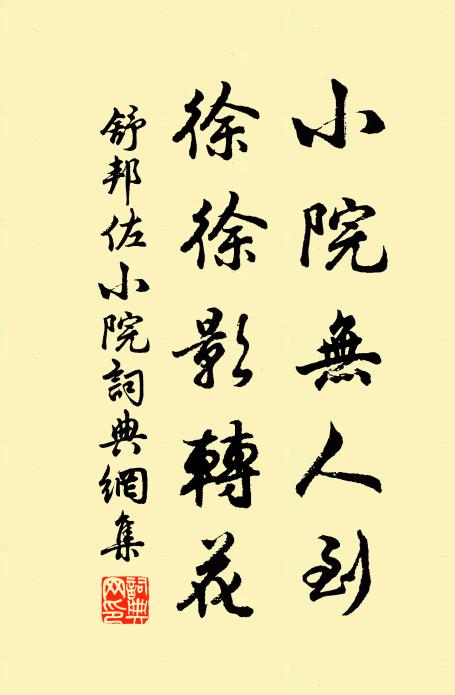 小院無人到
徐徐影轉花
舒邦佐小院詞典網集
詞典网印